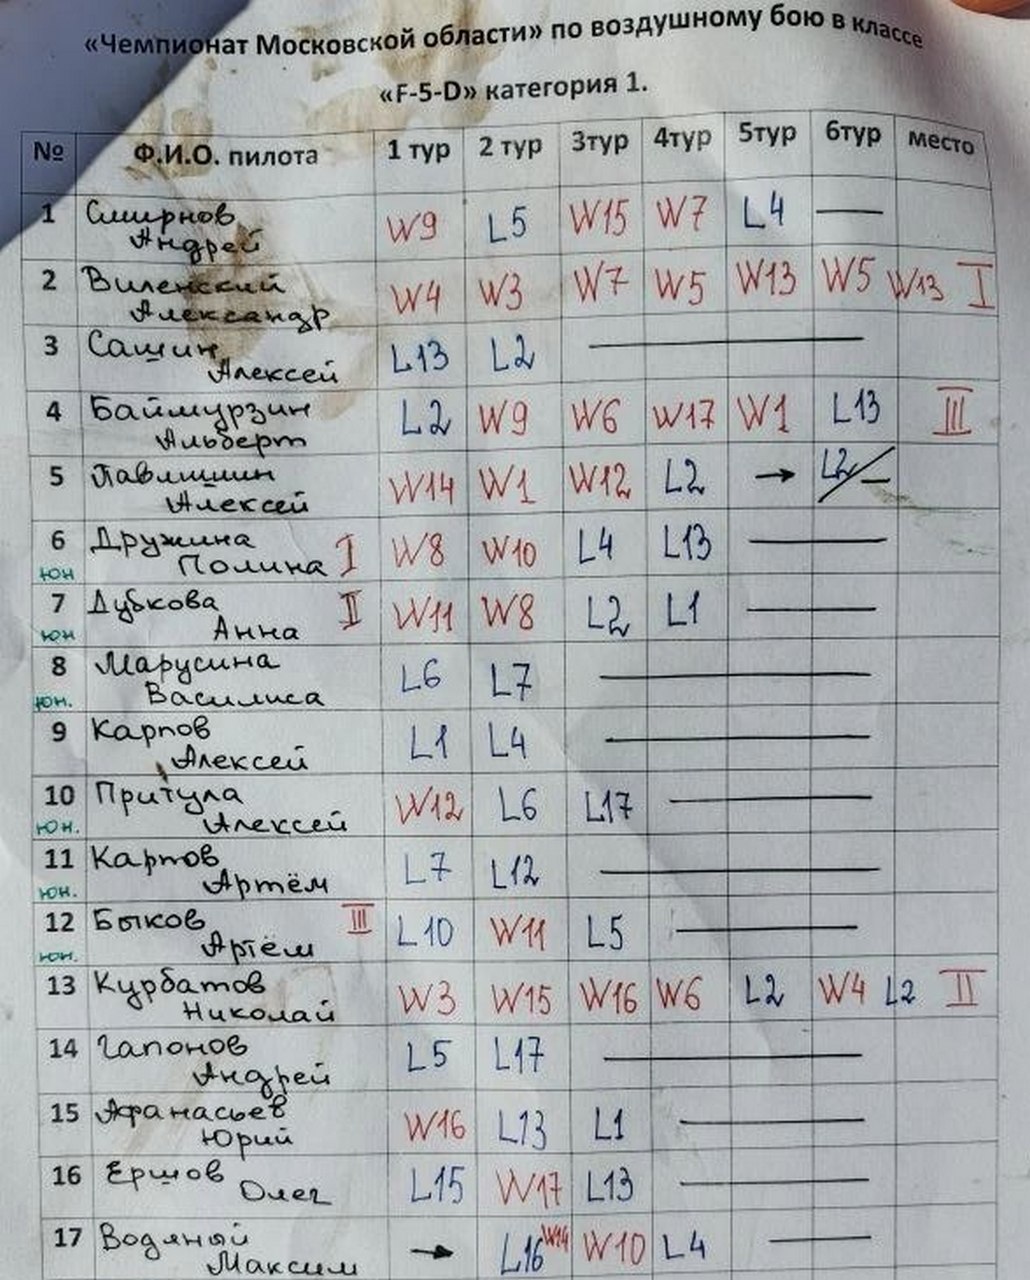 «Чемпионат Московской области» по воздушному бою в классе
«F-5-D» категория 1.
№ Ф.И.О. пилота 1 тур 2 тур 3тур 4тур 5тур 6тур место
1 Смирнов Андрей W9 L5 W15 W7 L4 —
2 Виленский Александр W4 W3 W7 W5 W13 W5 W13 I
3 Сашин Алексей L13 L2 —
4 Баймурзин Альберт L2 W9 W6 W17 W1 L13 III
5 Павлишин Алексей W14 W1 W12 L2 → L2 —
6 юн Дружина Полина I W8 W10 L4 L13 —
7 юн Дубкова Анна II W11 W8 L2 L1 —
8 юн. Марусина Василиса L6 L7 —
9 Карпов Алексей L1 L4 —
10 юн. Притула Алексей W12 L6 L17 —
11 юн. Карпов Артём L7 L12 —
12 юн. Быков Артём III L10 W11 L5 —
13 Курбатов Николай W3 W15 W16 W6 L2 W4 L2 II
14 Гапонов Андрей L5 L17 —
15 Афанасьев Юрий W16 L13 L1 —
16 Ершов Олег L15 W17 L13 —
17 Водяный Максим → L16 W14 W10 L4 —